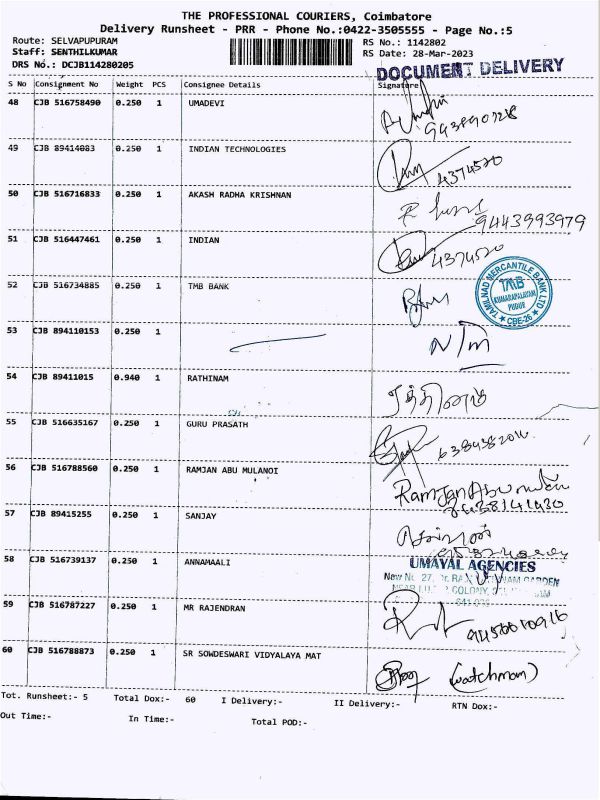 THE PROFESSIONAL COURIERS, Coimbatore
Delivery Runsheet - PRR - Phone No.:0422-3505555 - Page No.:5
Route: SELVAPUPURAM
RS No.: 1142802
Staff: SENTHILKUMAR
RS Date: 28-Mar-2023
DRS No.: DCJB114280205
DOCUMENT DELIVERY
S No Consignment No Weight PCS Consignee Details Signature
48 CJB 516758490 0.250 1 UMADEVI
49 CJB 89414083 0.250 1 INDIAN TECHNOLOGIES
4374520
50 CJB 516716833 0.250 1 AKASH RADHA KRISHNAN
9443993979
51 CJB 516447461 0.250 1 INDIAN
4374520
52 CJB 516734885 0.250 1 TMB BANK
TAMILNAD MERCANTILE BANK LTD
TMB
KUMARAPALAYAM
PUDUR
CBE-26
53 CJB 894110153 0.250 1
54 CJB 89411015 0.940 1 RATHINAM
55 CJB 516635167 0.250 1 GURU PRASATH
56 CJB 516788560 0.250 1 RAMJAN ABU MULANOI
57 CJB 89415255 0.250 1 SANJAY
58 CJB 516739137 0.250 1 ANNAMAALI
UMAYAL AGENCIES
59 CJB 516787227 0.250 1 MR RAJENDRAN
60 CJB 516788873 0.250 1 SR SOWDESWARI VIDYALAYA MAT
(watchman)
Tot. Runsheet:- 5 Total Dox:- 60 I Delivery:- II Delivery:- RTN Dox:-
Out Time:- In Time:- Total POD:-